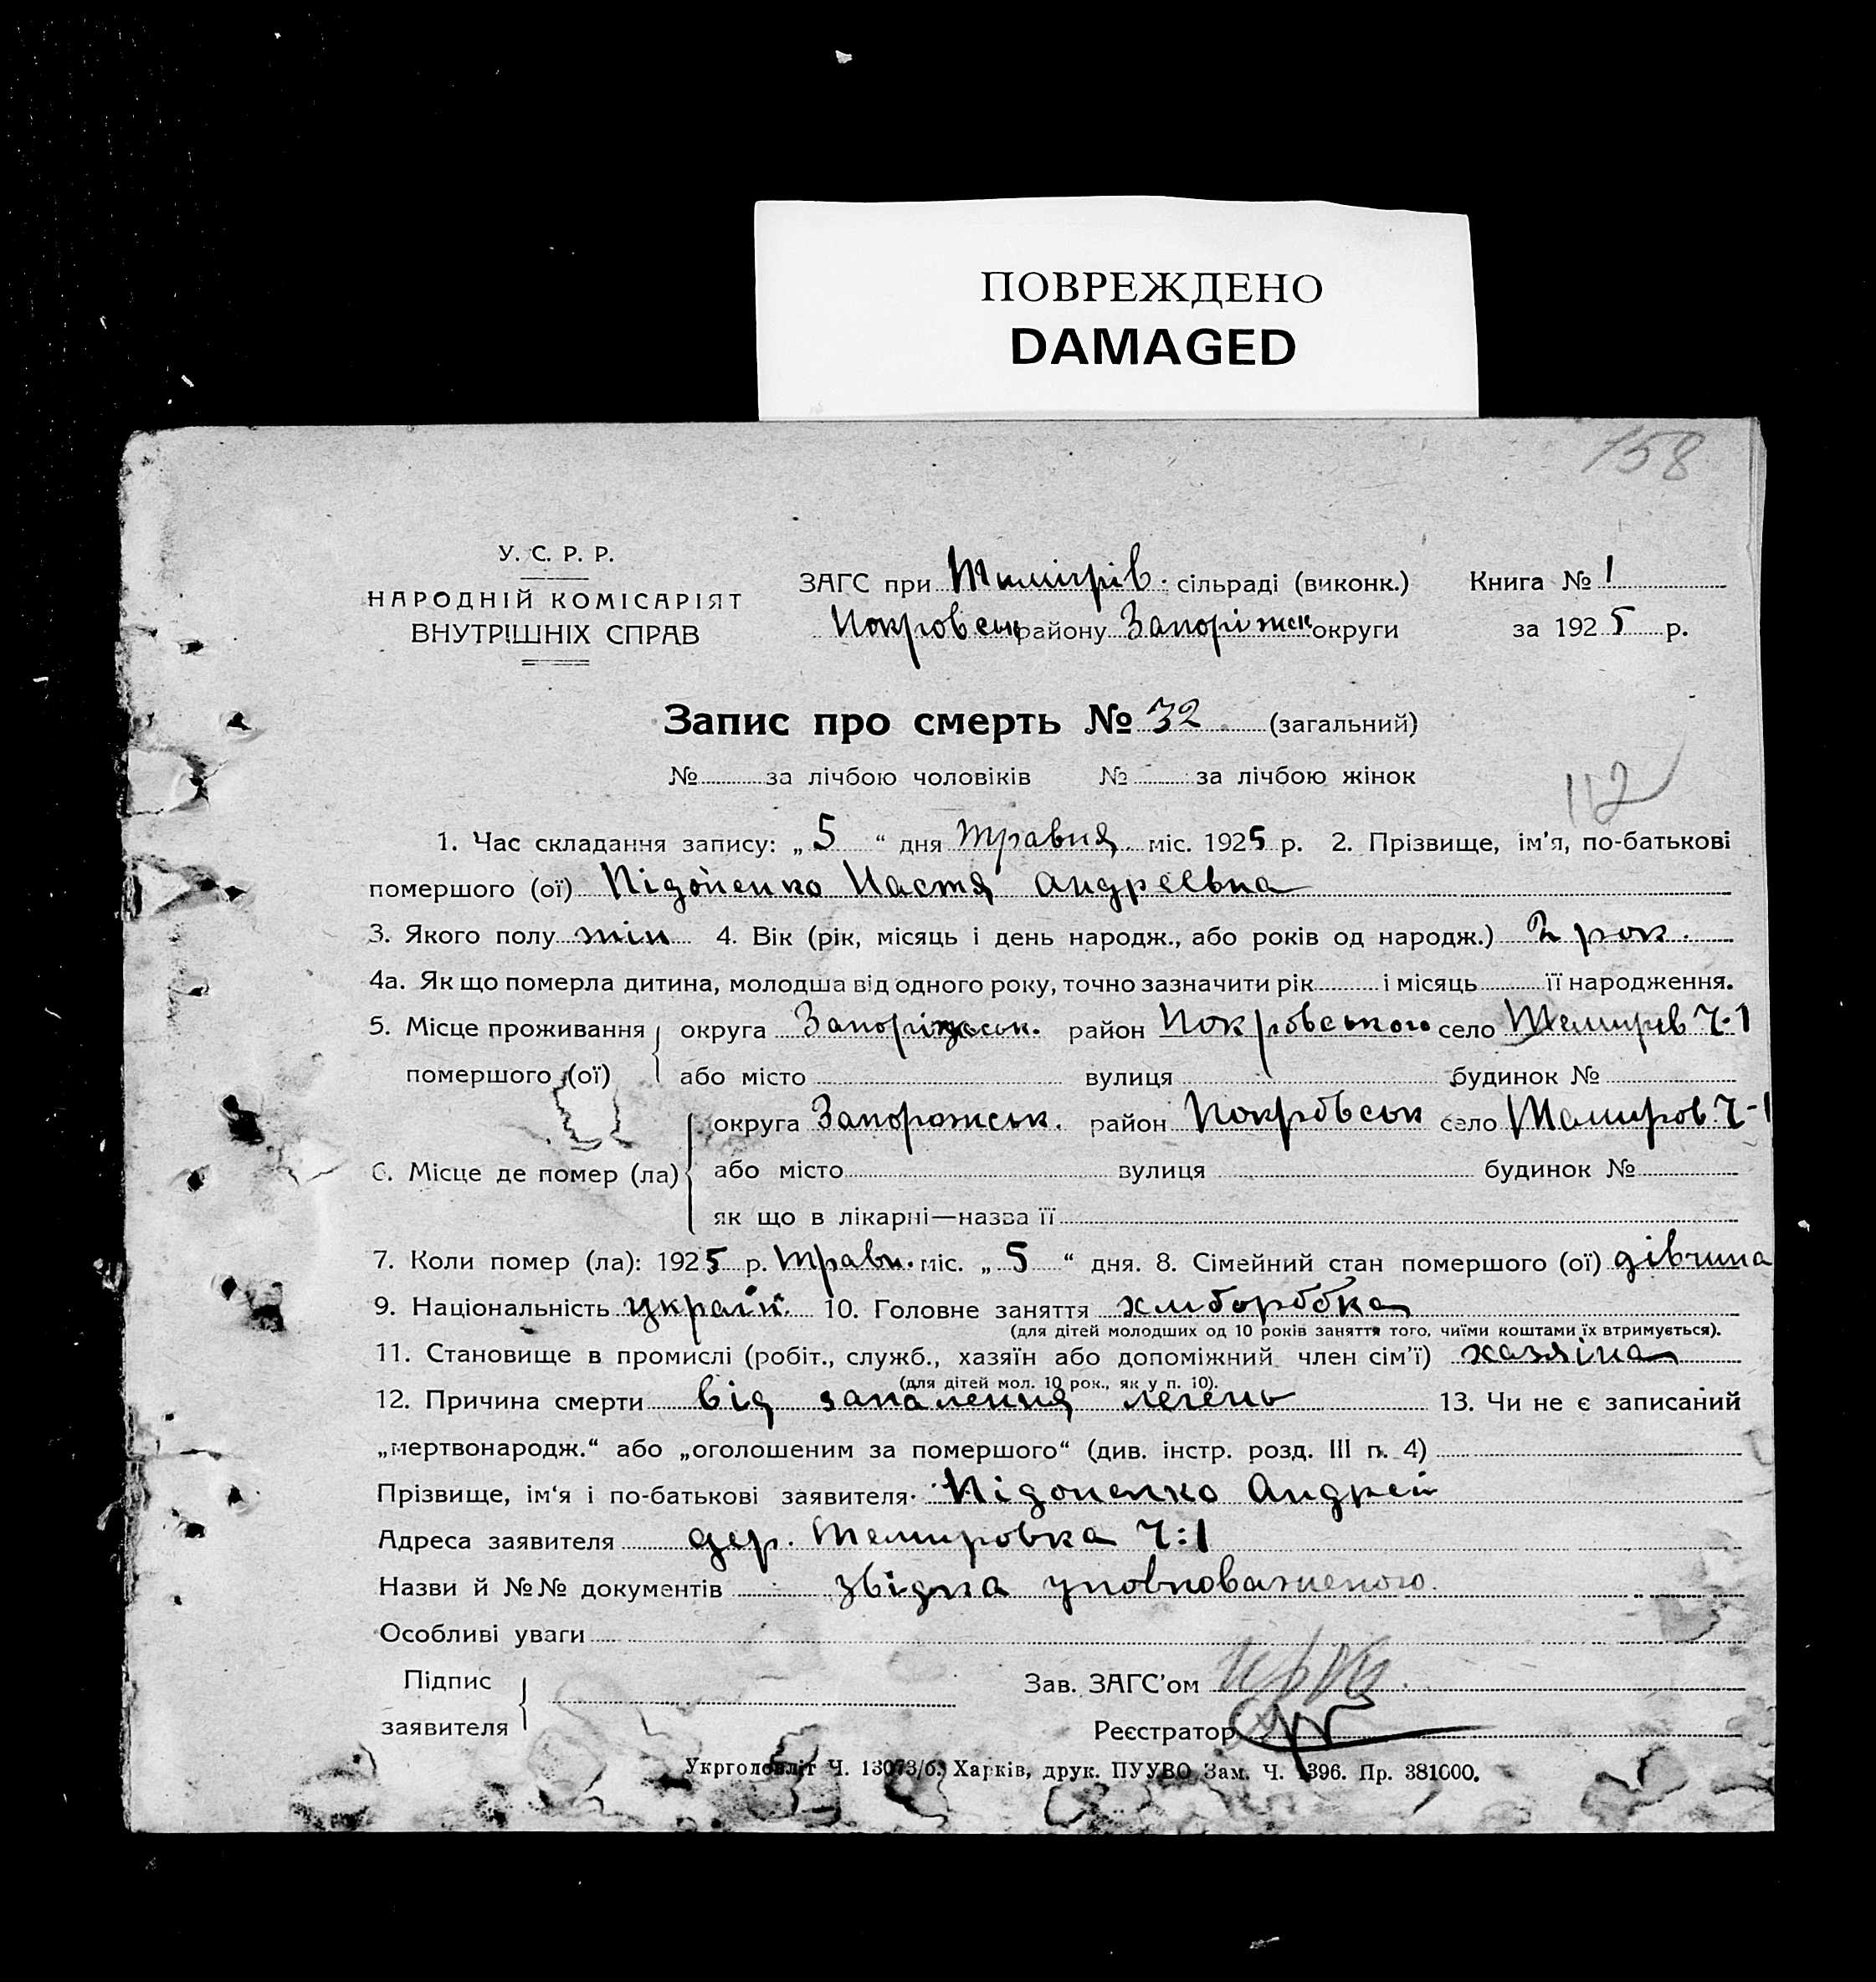 ПОВРЕЖДЕНО
DAMAGED
158
У. С. Р. Р.
НАРОДНІЙ КОМІСАРІЯТ
ВНУТРІШНІХ СПРАВ
ЗАГС при Темірів. сільраді (виконк.)
Покровськ району Запоріжск округи
Книга № 1
за 1925 р.
Запис про смерть № 32 (загальний)
№ за лічбою чоловіків № за лічбою жінок
112
1. Час складання запису: „ 5 “ дня травня міс. 1925 р. 2. Прізвище, ім'я, по-батькові
помершого (ої) Підопенко Настя Андреєвна
3. Якого полу жін 4. Вік (рік, місяць і день народж., або років од народж.) 2 рок.
4а. Як що померла дитина, молодша від одного року, точно зазначити рік і місяць її народження.
5. Місце проживання помершого (ої) округа Запоріжськ. район Покровського село Темирів Ч-1
або місто вулиця будинок №
6. Місце де помер (ла) округа Запорожськ. район Покровськ село Темиров. Ч-1
або місто вулиця будинок №
як що в лікарні—назва її
7. Коли помер (ла): 1925 р. травн. міс. „ 5 “ дня. 8. Сімейний стан помершого (ої) дівчина
9. Національність україн. 10. Головне заняття хліборобка
(для дітей молодших од 10 років заняття того, чиїми коштами їх втримується).
11. Становище в промислі (робіт., служб., хазяїн або допоміжний член сім'ї) хазяіна
(для дітей мол. 10 рок., як у п. 10).
12. Причина смерти від запалення легень 13. Чи не є записаний
„мертвонародж.“ або „оголошеним за помершого“ (див. інстр. розд. III п. 4)
Прізвище, ім'я і по-батькові заявителя Підопенко Андрей
Адреса заявителя дер. Темировка Ч:1
Назви й №№ документів звідка уповноваженого.
Особливі уваги
Підпис заявителя
Зав. ЗАГС'ом
Реєстратор
Укрголовліт Ч. 13073/б. Харків, друк. ПУУВО Зам. Ч. 1396. Пр. 381000.